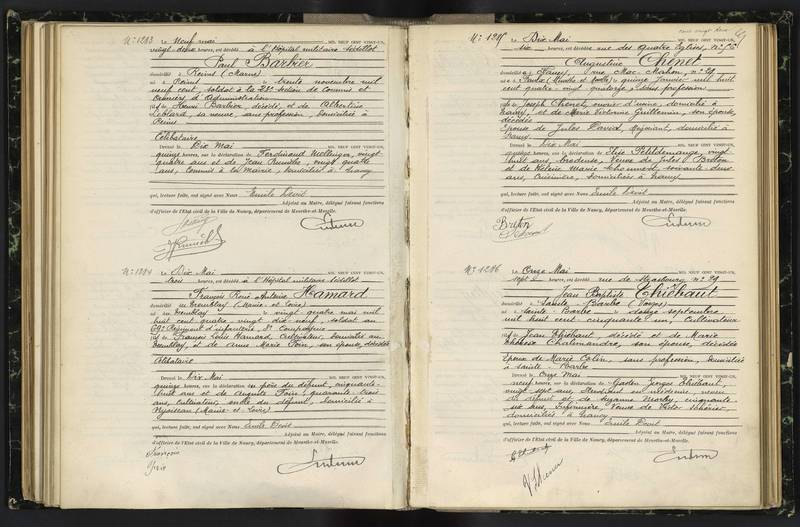 N° 1283 Le Neuf mai MIL NEUF CENT VINGT-UN,
vingt deux heures, est décédé à l'Hôpital militaire Sédillot
Paul Barbier
domicilié à Reims (Marne)
né à Reims le trente novembre mil
neuf cent, soldat à la 23e section de Commis et
Ouvriers d'Administration
fils de Henri Barbier, décédé, et de Albertine
Leblard, sa veuve, sans profession, domiciliée à
Reims
Célibataire
Dressé le Dix Mai
quinze heures, sur la déclaration de Ferdinand vingt
quatre ans et de Jean vingt quatre
ans, Commis à la Mairie, domiciliés à Nancy
qui, lecture faite, ont signé avec Nous Emile Devit
Adjoint au Maire, délégué faisant fonctions
d'officier de l'Etat civil de la Ville de Nancy, département de Meurthe-et-Moselle.
N° 1284 Le Dix Mai MIL NEUF CENT VINGT-UN,
trois heures, est décédé à l'Hôpital militaire Sédillot
François René Antoine Hamard
domicilié au Tremblay (Maine-et-Loire)
né à Tremblay le vingt quatre mai mil
huit cent quatre vingt dix neuf, soldat au
69e Régiment d'infanterie, 8e Compagnie
fils de François Louis Hamard, Cultivateur, domicilié au
Tremblay, et de Anne Marie son épouse, décédée
Célibataire
Dressé le Dix Mai
quinze heures, sur la déclaration du père du défunt, cinquante-
huit ans et de Auguste quarante trois
ans, Cultivateur, oncle du défunt, domicilié à
(Maine-et-Loire)
qui, lecture faite, ont signé avec Nous Emile Devit
Adjoint au Maire, délégué faisant fonctions
d'officier de l'Etat civil de la Ville de Nancy, département de Meurthe-et-Moselle.
N° 1285 Le Dix Mai MIL NEUF CENT VINGT-UN,
six heures, est décédée rue des Quatre Eglises, N°
Augustine Chenet
domiciliée à Nancy, rue Mac-Mahon, n° 29
née à (Meurthe et Moselle) le quinze Janvier mil huit
cent quatre-vingt quatorze, sans profession
fille de Joseph Chenet, ouvrier d'usine, domicilié à
Nancy, et de Marie Victorine Guillemin, son épouse,
décédée
Epouse de Jules David, Négociant, domicilié à
Nancy
Dressé le Dix Mai
quinze heures, sur la déclaration de Elise Petitdemange, vingt
huit ans, brodeuse, Veuve de Jules Breton
et de Hélène Marie soixante-deux
ans, Cuisinière, domiciliées à Nancy
qui, lecture faite, ont signé avec Nous Emile Devit
Adjoint au Maire, délégué faisant fonctions
d'officier de l'Etat civil de la Ville de Nancy, département de Meurthe-et-Moselle.
Breton
N° 1286 Le Onze Mai MIL NEUF CENT VINGT-UN,
sept heures, est décédé rue de Strasbourg n° 29
Jean Baptiste Thiébaut
domicilié à Sainte-Barbe (Vosges)
né à Sainte-Barbe le douze septembre
mil huit cent cinquante un, Cultivateur
fils de Jean Thiébaut, décédé et de Marie
Thérèse son épouse, décédée
Epoux de Marie Colin, sans profession, domiciliée
à Sainte-Barbe
Dressé le Onze Mai
neuf heures, sur la déclaration de Gaston Georges Thiébaut,
vingt sept ans, Etudiant en médecine, neveu
du défunt et de Suzanne cinquante
six ans, Infirmière, Veuve de Victor
domiciliés à Nancy
qui, lecture faite, ont signé avec Nous Emile Devit
Adjoint au Maire, délégué faisant fonctions
d'officier de l'Etat civil de la Ville de Nancy, département de Meurthe-et-Moselle.